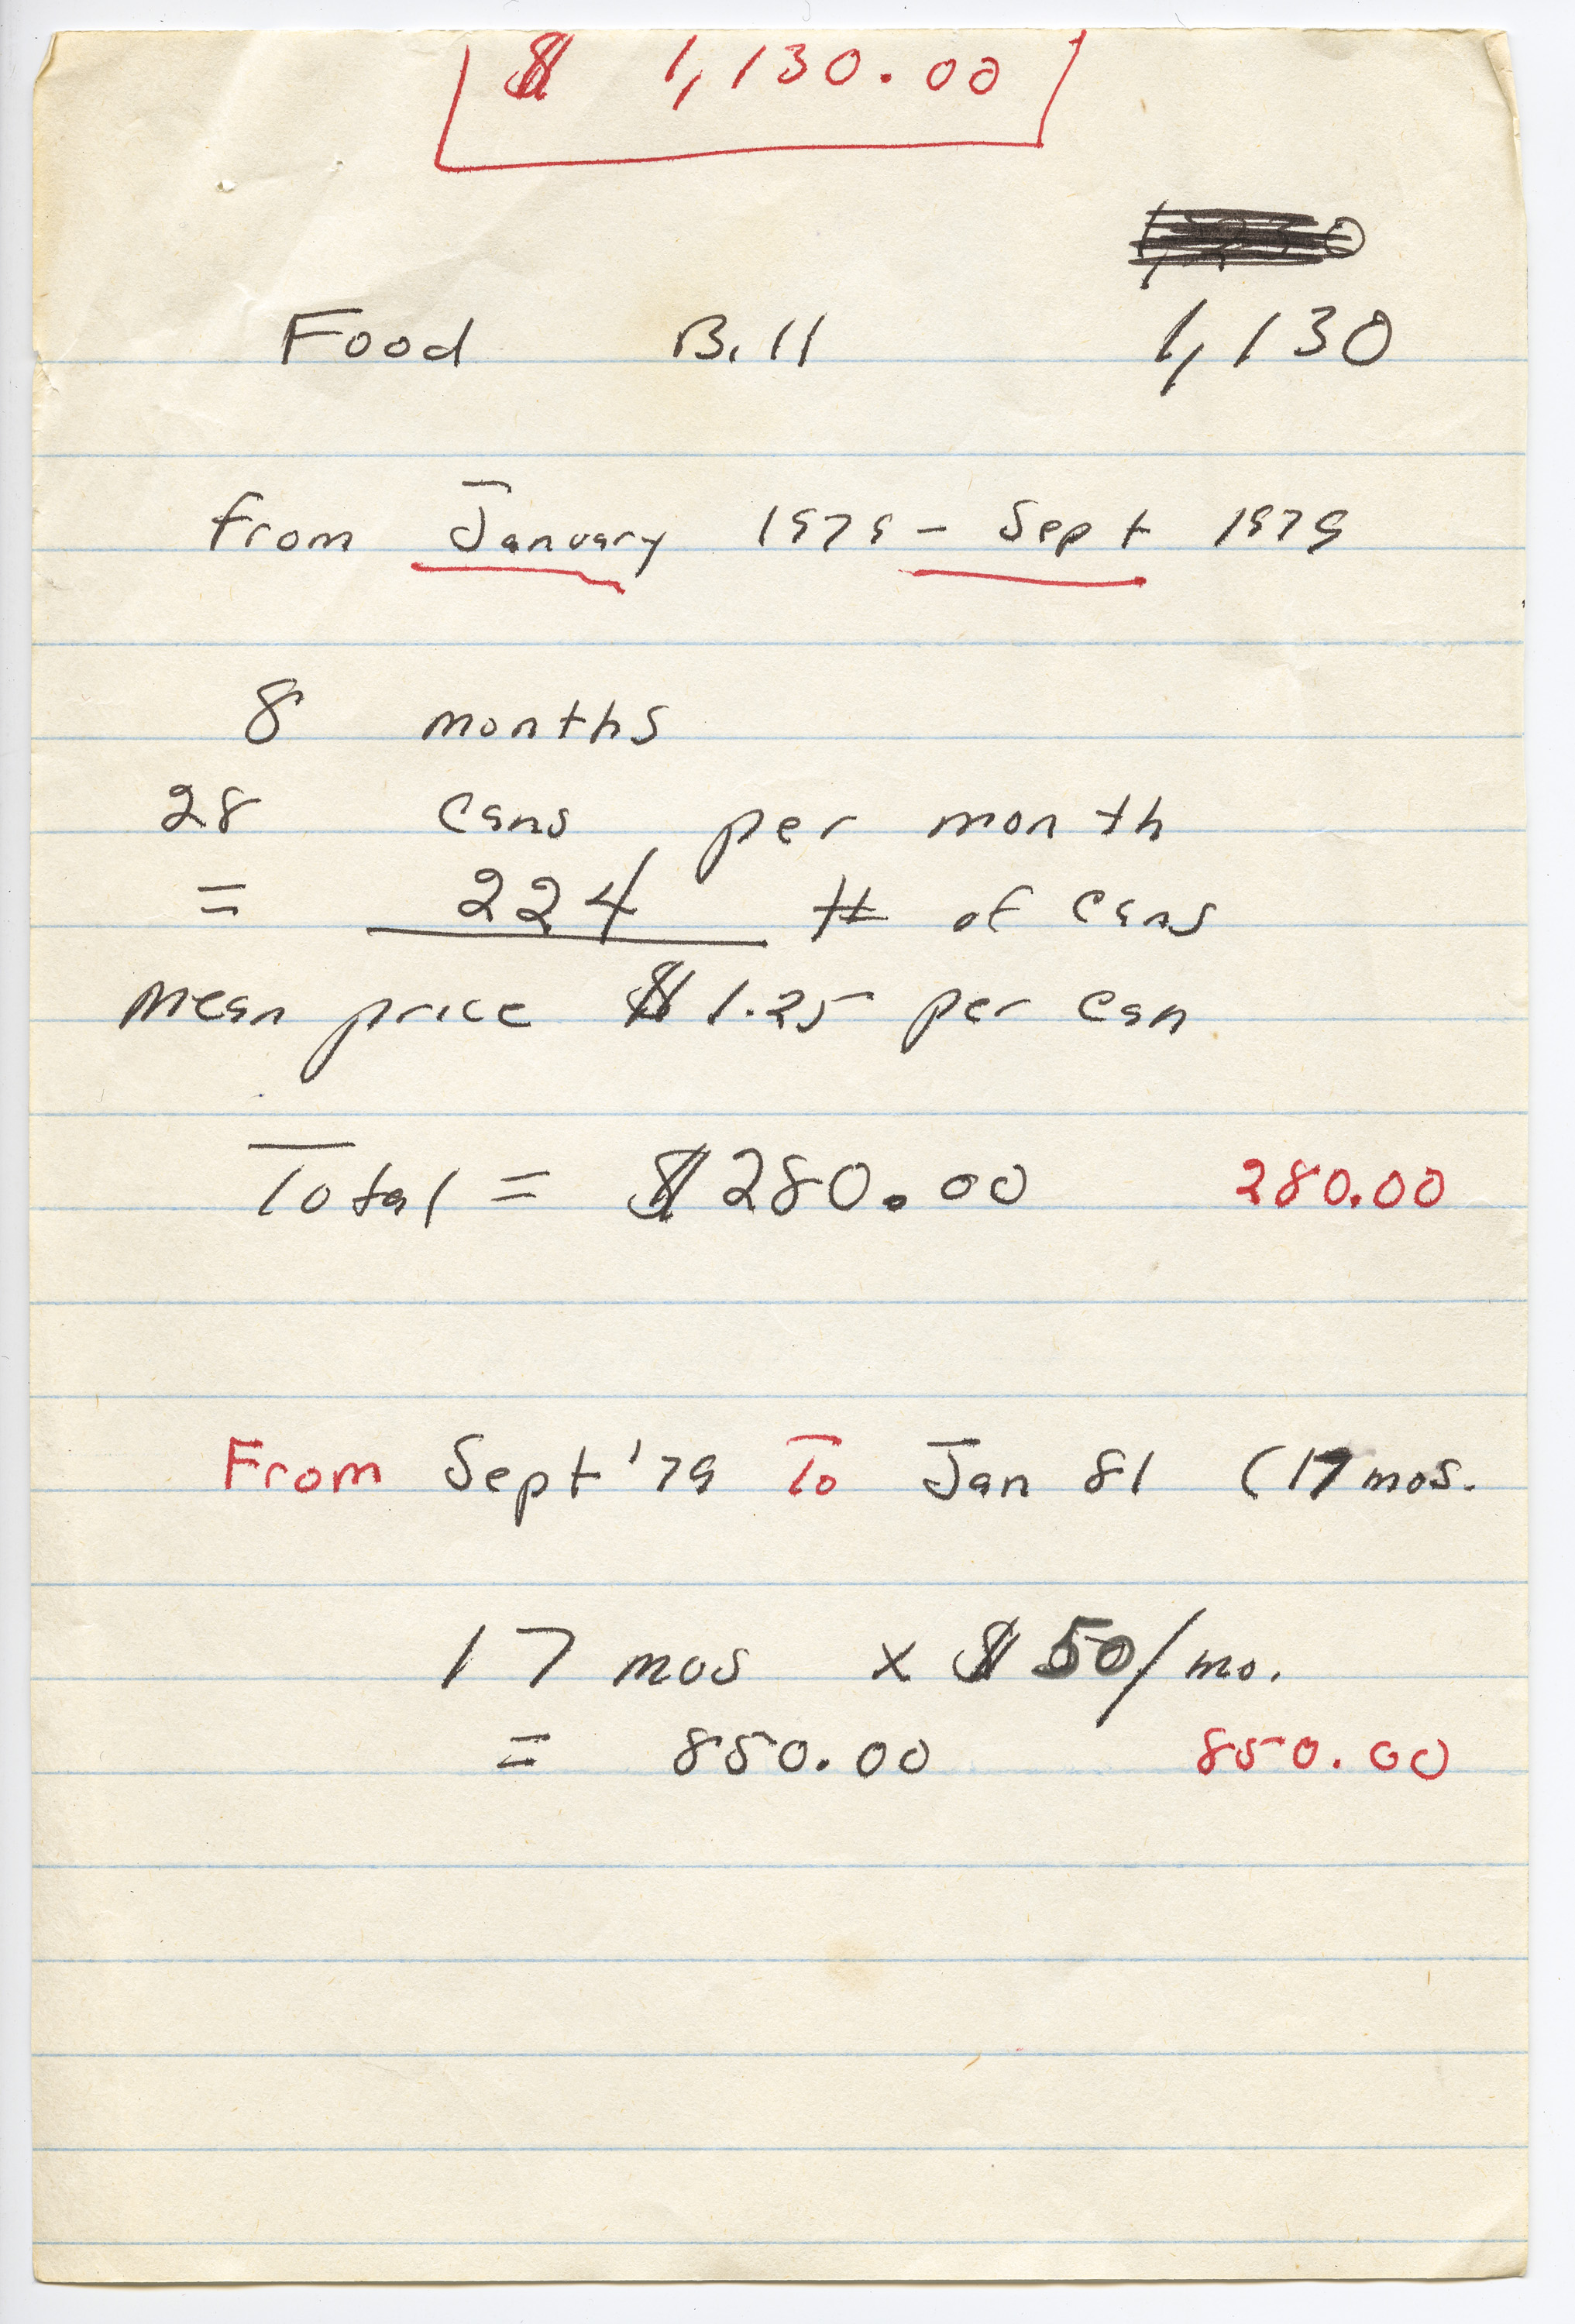 $ 1,130.00
Food Bill 1,130
from January 1979 - Sept 1979
8 months
28 cans per month
= 224 # of cans
mean price $1.25 per can
Total = $280.00 280.00
From Sept '79 To Jan 81 (17 mos.
17 mos x $50/mo.
= 850.00 850.00